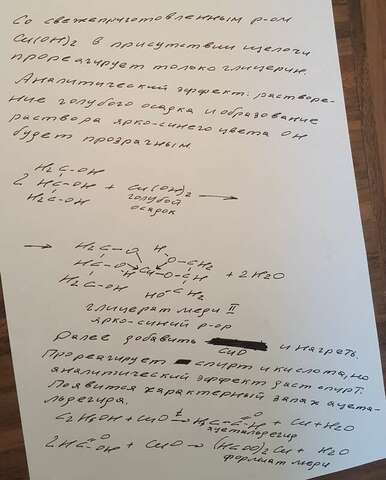 Со свежеприготовленным р-ом
Cu(OH)2 в присутствии щелочи
прореагирует только глицерин.
Аналитический эффект: растворе-
ние голубого осадка и образование
раствора ярко-синего цвета он
будет прозрачным
H2C-OH
2 HC-OH + Cu(OH)2 →
H2C-OH голубой
осадок
→ H2C-O H O-CH2
HC-O Cu O-CH + 2H2O
H
H2C-OH HO-CH2
глицерат меди II
ярко-синий р-ор
Далее добавить CuO и нагреть.
Прореагирует спирт и кислота, но
аналитический эффект даст спирт.
Появится характерный запах ацета-
льдегида.
C2H5OH + CuO →t H3C-C=O-H + Cu + H2O
ацетальдегид
2HC=O-OH + CuO → (HCOO)2Cu + H2O
формиат меди